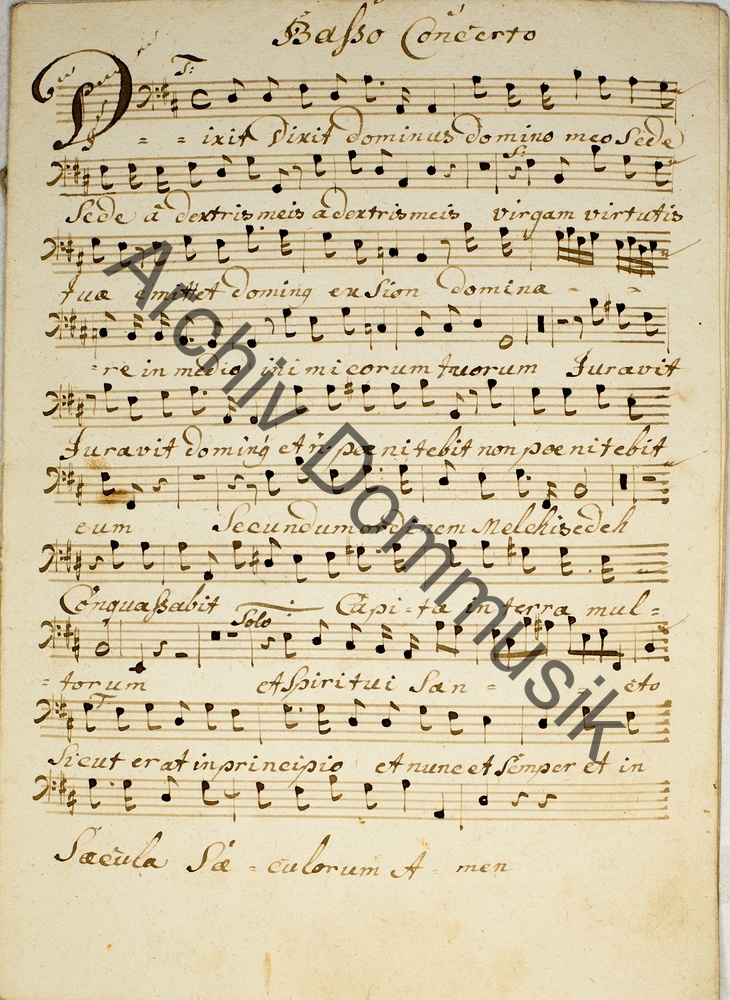 Basso Concerto
T:
Dixit Dixit dominus domino meo Sede
S:
Sede à dextris meis a dextris meis virgam virtutis
tuæ emittet doming ex Sion domina - -
- re in medio inimicorum tuorum Juravit
Juravit doming et ñ poenitebit non poenitebit
eum Secundum ordinem Melchisedeh
Conquaßabit Capi - ta in terra mul =
Solo
= torum et Spiritui San = - cto
T
Sicut erat in principio et nunc et Semper et in
Sæcula Sæ = culorum A - men
Archiv Dommusik